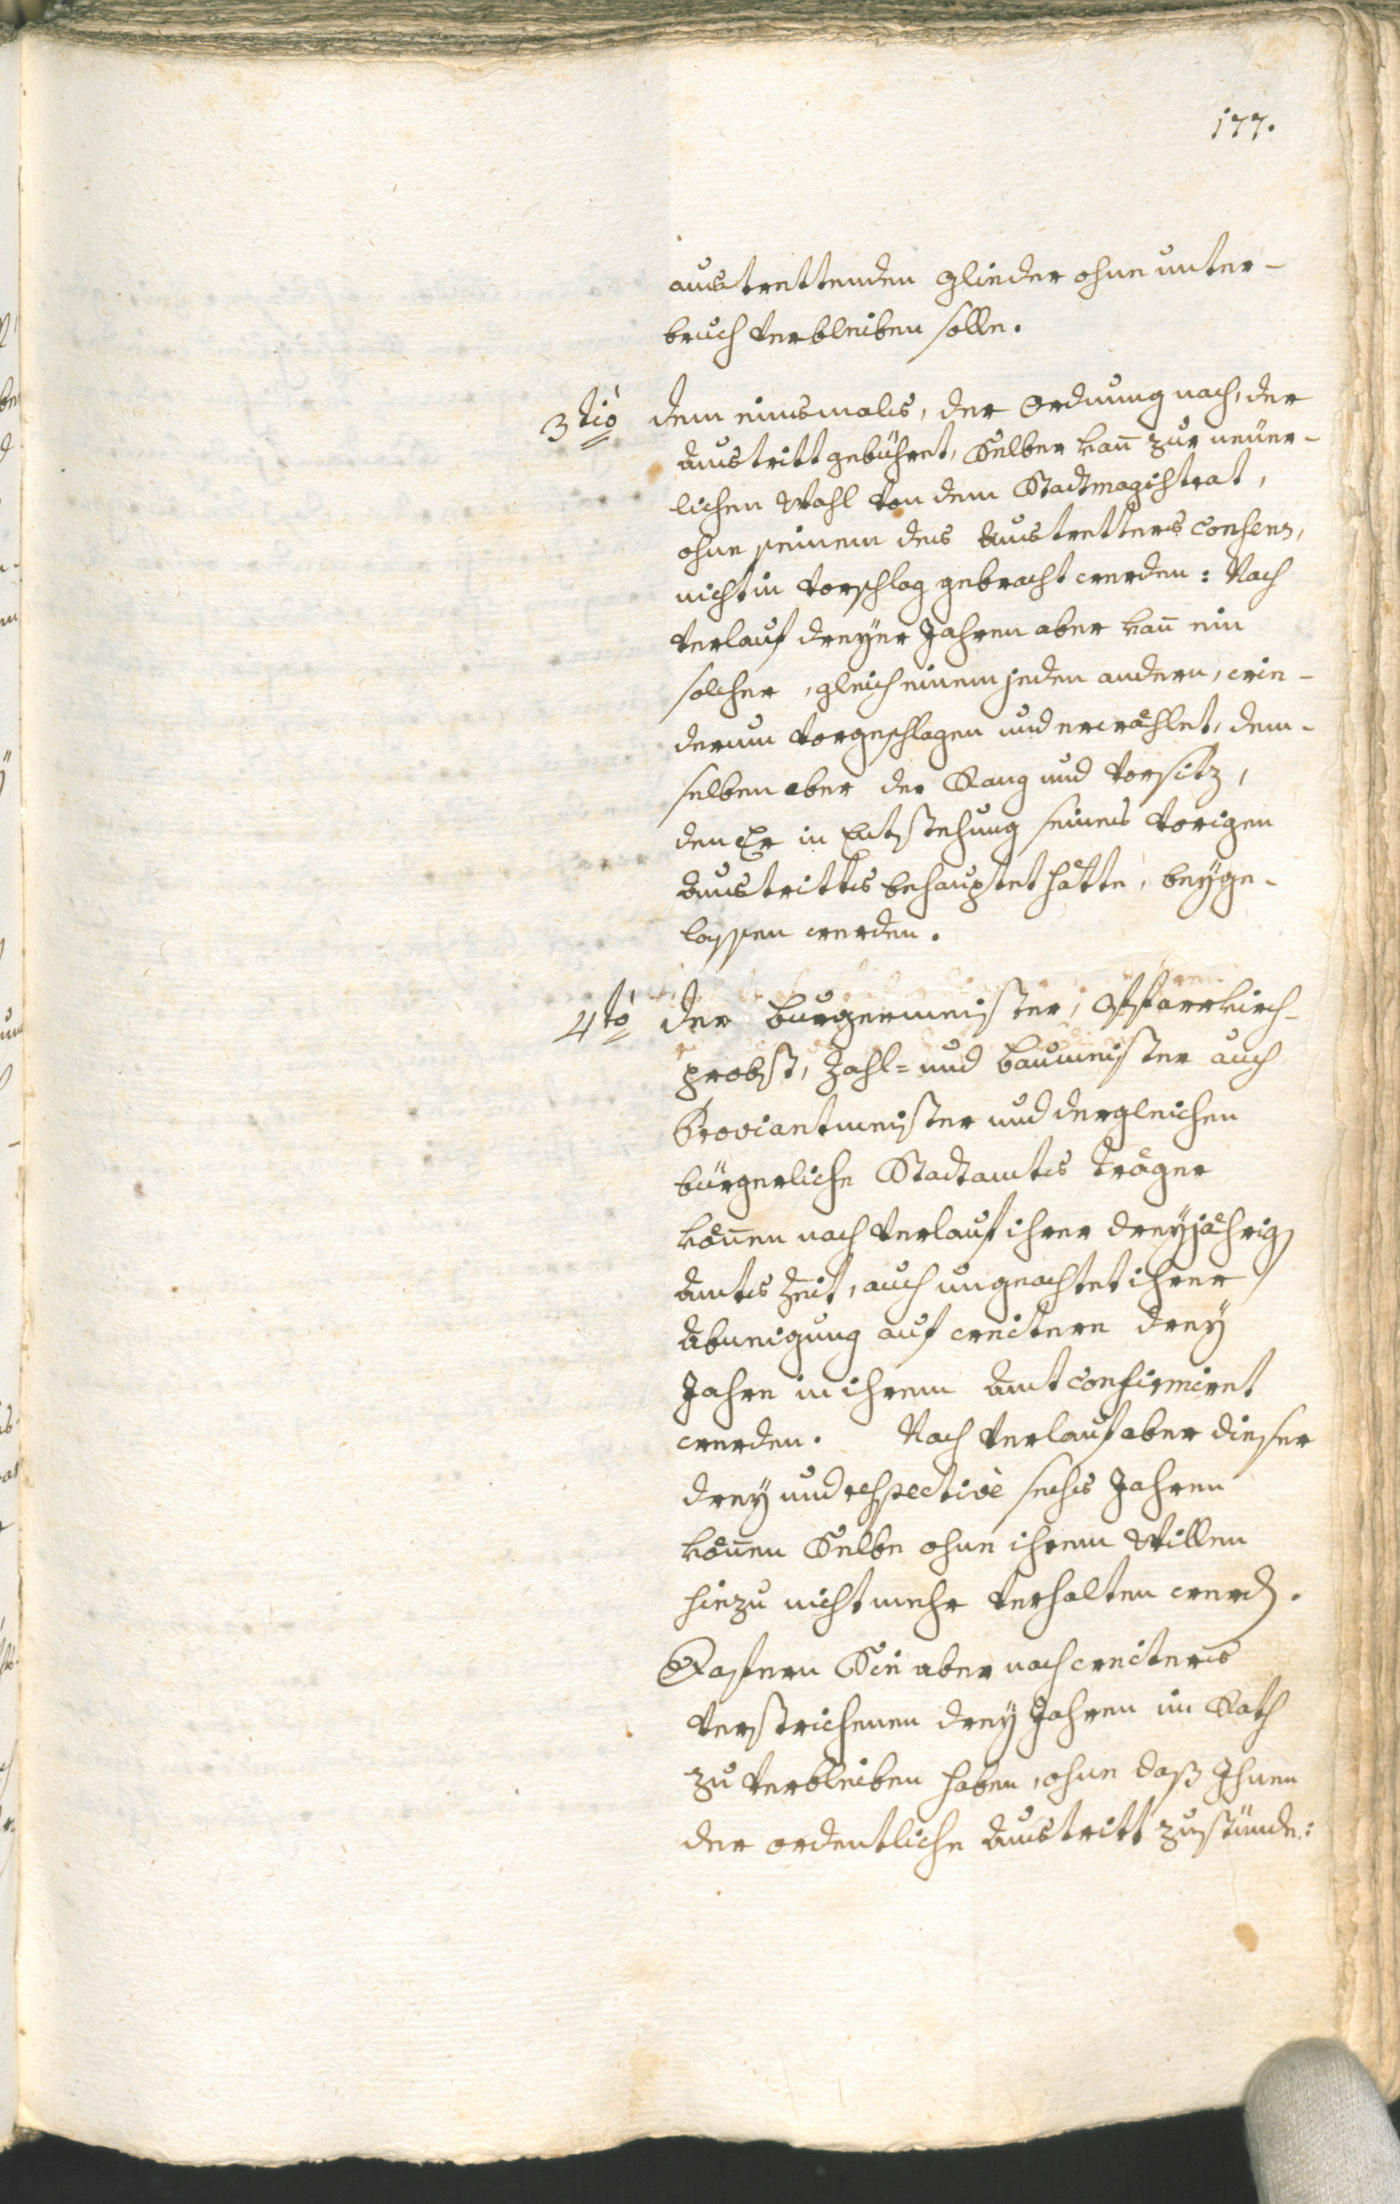 177.
austrettenden Glieder ohne unter-
bruch verbleiben solle.
3tiò dem einsmals, der Ordnung nach, der
Austritt gebühret, Selber kan̄ zur neuer-
lichen Wahl von dem Stadtmagistrat,
ohne seinem des Austretters Consens,
nicht in Vorschlag gebracht werden: Nach
Verlauf dreyer Jahren aber kan̄ ein
solcher, gleich einem jeden andern, wie-
derum vorgeschlagen und erwählet, dem-
selben aber der Rang und Vorsitz,
den Er in Entstehung seines vorigen
Austritts behauptet hätte, beyge-
lassen werden.
4tò der Burgermeister, Pfarrkirch-
probst, Zahl- und Baumeister auch
Proviantmeister und dergleichen
bürgerliche Stadtamts Träger
kön̄en nach Verlauf ihrer dreyjährig
Amts Zeit, auch ungeachtet ihrer
Abneigung auf weitere drey
Jahre in ihrem Amt confirmiret
werden. Nach Verlauf aber dieser
drey und respectivè sechs Jahren
kön̄en Selbe ohne ihrem Willen
hiezu nicht mehr verhalten werd.
Dafern Sie aber nach weiters
verstrichenen drey Jahren im Rath
zu verbleiben haben, ohne daß Ihnen
der ordentliche Austritt zustünde: